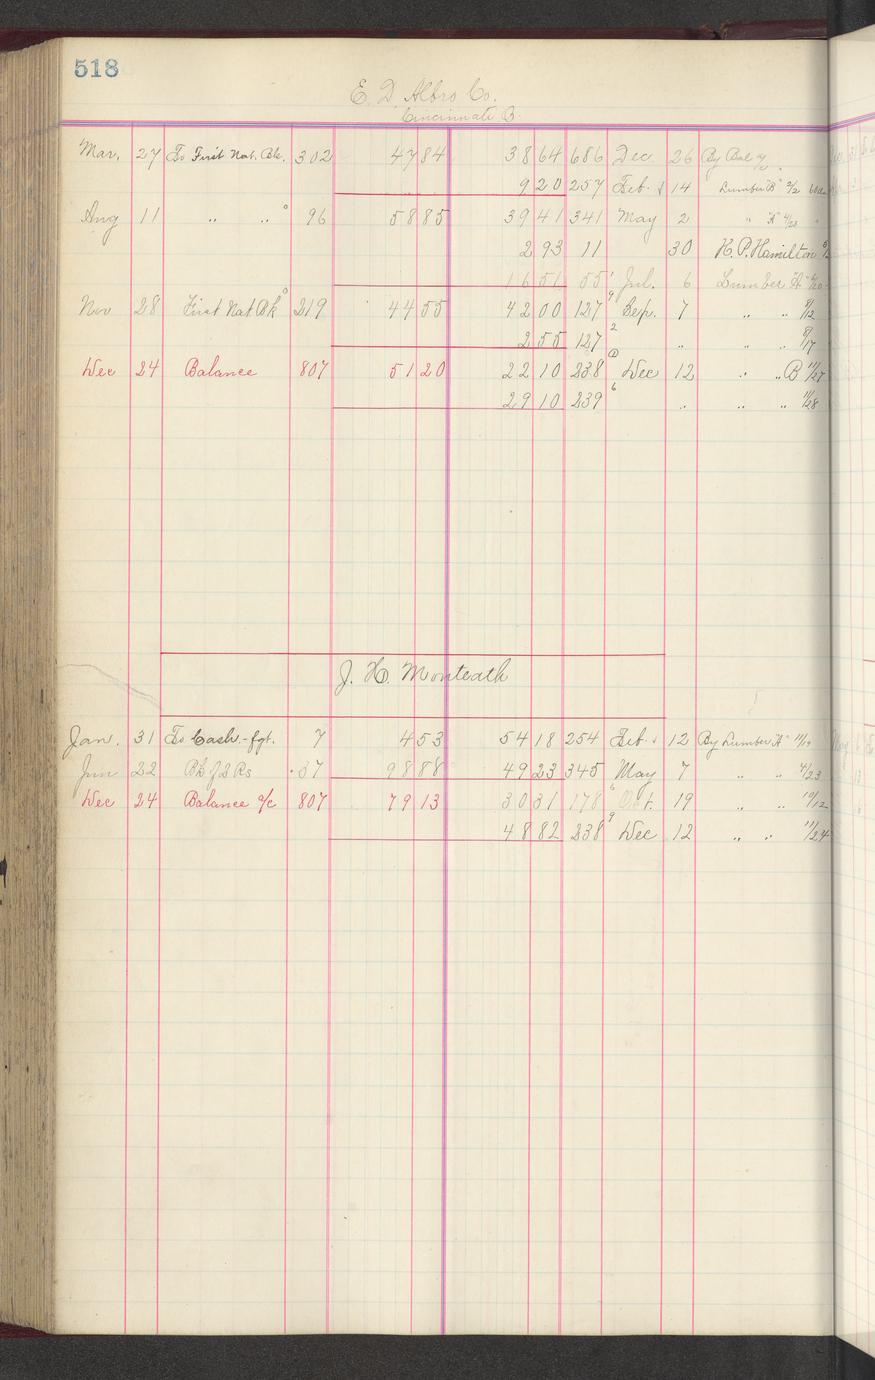 518
E. D. Albro Co.
Cincinnati O.
Mar. 27 To First Nat. Bk. 302 47 84 38 64 686 Dec 26 By Bal
9 20 257 Feb. 14 Lumber "B" 2/2
Aug 11 " " 96 58 85 39 41 341 May 2 " "A" 4/23 "
2 93 11 30 H. P. Hamilton
16 51 55 Jul. 6 Lumber "A"
Nov 28 First Nat Bk 219 44 55 42 00 127 Sep. 7 " " 8/12
2 55 127 " " " 8/17
Dec 24 Balance 807 51 20 22 10 238 Dec 12 " " B 11/27
29 10 239 " " " 11/28
J. H. Monteath
Jan. 31 To Cash.-fgt. 7 4 53 54 18 254 Feb. 12 By Lumber "A" 11/19
Jun 22 37 98 88 49 23 345 May 7 " " 4/23
Dec 24 Balance a/c 807 79 13 30 31 178 Oct. 19 " " 10/12
48 82 238 Dec 12 " " 11/24